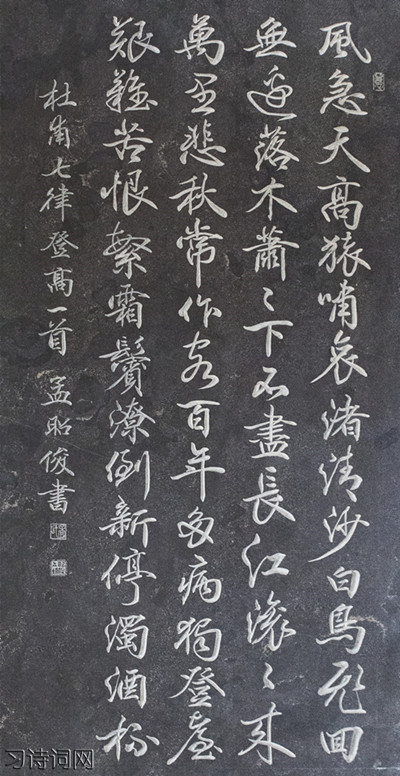 風急天高猿嘯哀渚清沙白鳥飛回
無邊落木蕭〻下不盡長江滾〻來
萬里悲秋常作客百年多病獨登臺
艱難苦恨繁霜鬢潦倒新停濁酒杯
杜甫七律登高一首 孟昭俊書
习诗词网